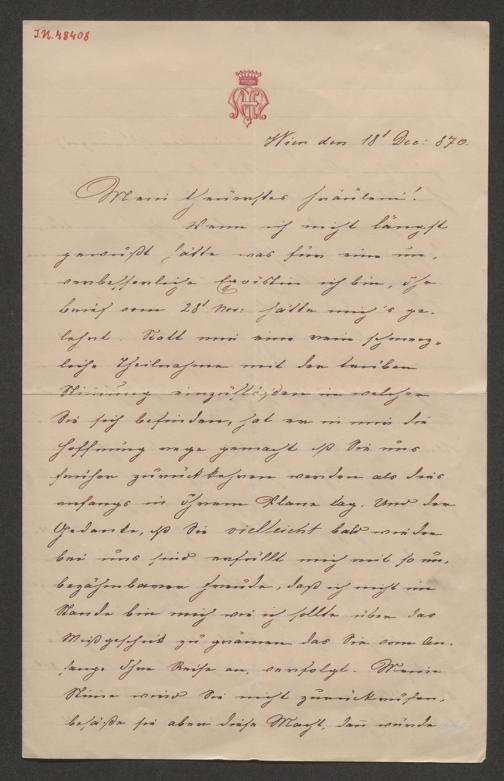 J.N. 48408
Wien den 18t Dec: 870.
Mein theuerstes Fräulein!
Wenn ich nicht längst
gewußt hätte was für eine un-
verbesserliche Egoistin ich bin, Ihr
Brief vom 28t Nov: hätte mich's ge-
lehrt. Statt mir eine rein schmerz-
liche Theilnahme mit der trüben
Stimmung einzuflößen in welcher
Sie sich befinden, hat er in mir die
Hoffnung rege gemacht daß Sie uns
früher zurückkehren werden als dies
anfangs in Ihrem Plane lag. Und der
Gedanke, daß Sie vielleicht bald wieder
bei uns sind erfüllt mich mit so un-
bezähmbarer Freude, daß ich nicht im
Stande bin mich wie ich sollte über das
Mißgeschick zu grämen das Sie vom An-
fange Ihrer Reise an, verfolgt. Meine
Stimme wird Sie nicht zurückrufen,
besäße sie aber diese Macht, dann würde